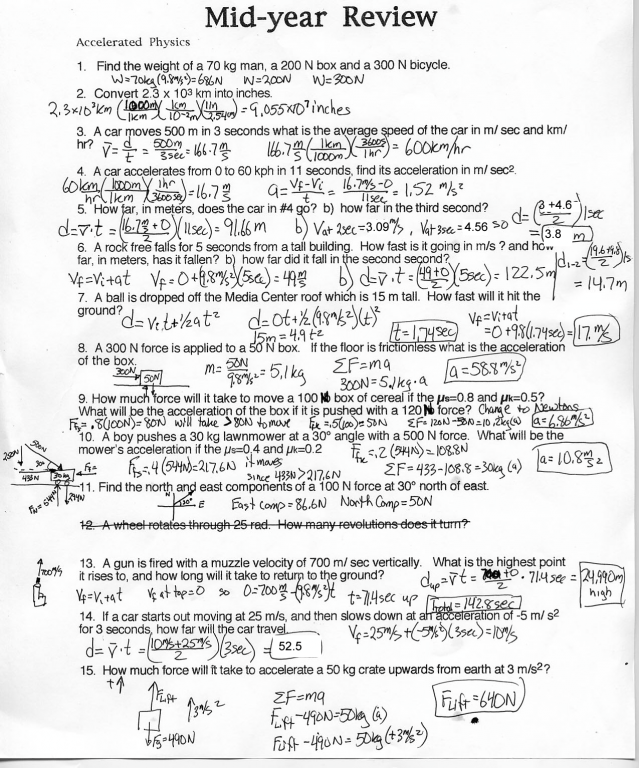 Mid-year Review
Accelerated Physics
1. Find the weight of a 70 kg man, a 200 N box and a 300 N bicycle.
W=70kg(9.8m/s²)=686N W=200N W=300N
2. Convert 2.3 x 10³ km into inches.
2.3x10³km (1000m/1km)(1cm/10⁻²m)(1in/2.54cm) = 9.055x10⁷ inches
3. A car moves 500 m in 3 seconds what is the average speed of the car in m/ sec and km/
hr? v̄ = d/t = 500m/3sec = 166.7 m/s 166.7 m/s (1km/1000m)(3600s/1hr) = 600km/hr
4. A car accelerates from 0 to 60 kph in 11 seconds, find its acceleration in m/ sec².
60km/hr (1000m/1km)(1hr/3600sec) = 16.7 m/s a = Vf-Vi/t = 16.7m/s-0/11sec = 1.52 m/s²
5. How far, in meters, does the car in #4 go? b) how far in the third second?
d=v̄·t = (16.7+0/2)(11sec) = 91.66m b) Vat 2sec=3.09m/s, Vat 3sec=4.56 so d=(3+4.6/2)1sec = 3.8 m
6. A rock free falls for 5 seconds from a tall building. How fast is it going in m/s ? and how
far, in meters, has it fallen? b) how far did it fall in the second second?
Vf=Vi+at Vf=0+(9.8m/s²)(5sec)=49m/s b) d=v̄·t=(49+0/2)(5sec)=122.5m d1-2=(19.6+9.8/2)1s = 14.7m
7. A ball is dropped off the Media Center roof which is 15 m tall. How fast will it hit the
ground? d=Vit+1/2at² d=0t+1/2(9.8m/s²)(t)² Vf=Vi+at
15m=4.9t² t=1.74sec =0+9.8(1.74sec)=17m/s
8. A 300 N force is applied to a 50 N box. If the floor is frictionless what is the acceleration
of the box. 300N 50N m=50N/9.8m/s²=5.1kg ΣF=ma a=58.8m/s²
300N=5.1kg·a
9. How much force will it take to move a 100 N box of cereal if the μs=0.8 and μk=0.5?
What will be the acceleration of the box if it is pushed with a 120 N force? Change to Newtons
Ffs=.8(100N)=80N will take >80N to move Ffk=.5(100)=50N ΣF=120N-50N=10.2kg(a) a=6.86m/s²
10. A boy pushes a 30 kg lawnmower at a 30° angle with a 500 N force. What will be the
mower's acceleration if the μs=0.4 and μk=0.2 Ffk=.2(544N)=108.8N
Ffs=.4(544N)=217.6N it moves since 433N>217.6N ΣF=433-108.8=30kg(a) a=10.8m/s²
250N 500N 30° 433N 30kg Ff= FN=544N 294N
11. Find the north and east components of a 100 N force at 30° north of east.
N 30° E East comp=86.6N North comp=50N
12. A wheel rotates through 25 rad. How many revolutions does it turn?
13. A gun is fired with a muzzle velocity of 700 m/ sec vertically. What is the highest point
it rises to, and how long will it take to return to the ground? dup=v̄t=700+0/2·71.4sec=24,990m high
700m/s Vf=Vi+at Vf at top=0 so 0=700m/s-(9.8m/s²)t t=71.4sec up Ttotal=142.8sec
14. If a car starts out moving at 25 m/s, and then slows down at an acceleration of -5 m/ s²
for 3 seconds, how far will the car travel. Vf=25m/s+(-5m/s²)(3sec)=10m/s
d=v̄·t=(10m/s+25m/s/2)(3sec)= 52.5
15. How much force will it take to accelerate a 50 kg crate upwards from earth at 3 m/s²?
+↑ FLift 3m/s² ΣF=ma FLift=640N
FLift-490N=50kg(a)
Fg=490N FLift-490N=50kg(+3m/s²)